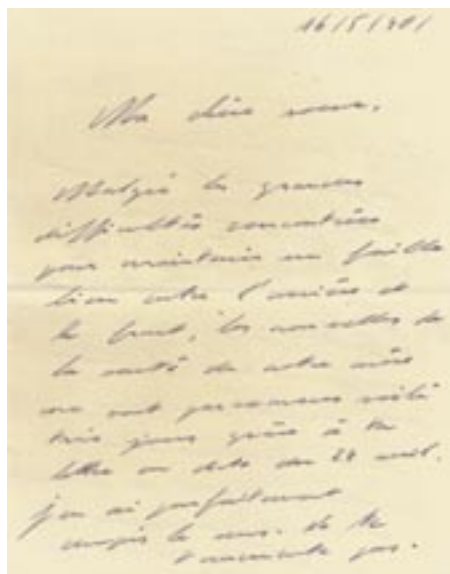 Ma chère soeur,
Malgré les grandes
difficultés rencontrées
pour maintenir un faible
lien entre l'arrière et
le front, les nouvelles de
la santé de notre mère
me sont parvenues voilà
trois jours grâce à ta
lettre en date du 28 avril.
J'en ai parfaitement
compris le sens. Ne te
tourmente pas.